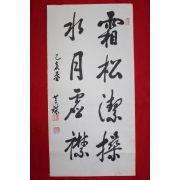 霜松潔操
水月虛襟
己亥春